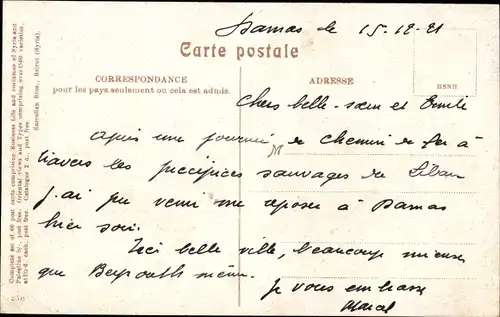 Damas le 15-12-21
Carte postale
CORRESPONDANCE
pour les pays seulement ou cela est admis.
ADRESSE
BSNH
Chers belle-sœur et Emile
Après une journée de chemin de fer à
travers les précipices sauvages du Liban
j'ai pu venir me reposer à Damas
hier soir.
Ici belle ville, beaucoup mieux
que Beyrouth même.
Je vous embrasse
Marcel
Complete set of 60 post cards comprising Business Life and costumes of Syria and
Palestine post free. Oriental Views and Types comprising over varieties
each, post free. Catalogue 2 d., post free.
Sarrafian Bros., Beirut (Syria).